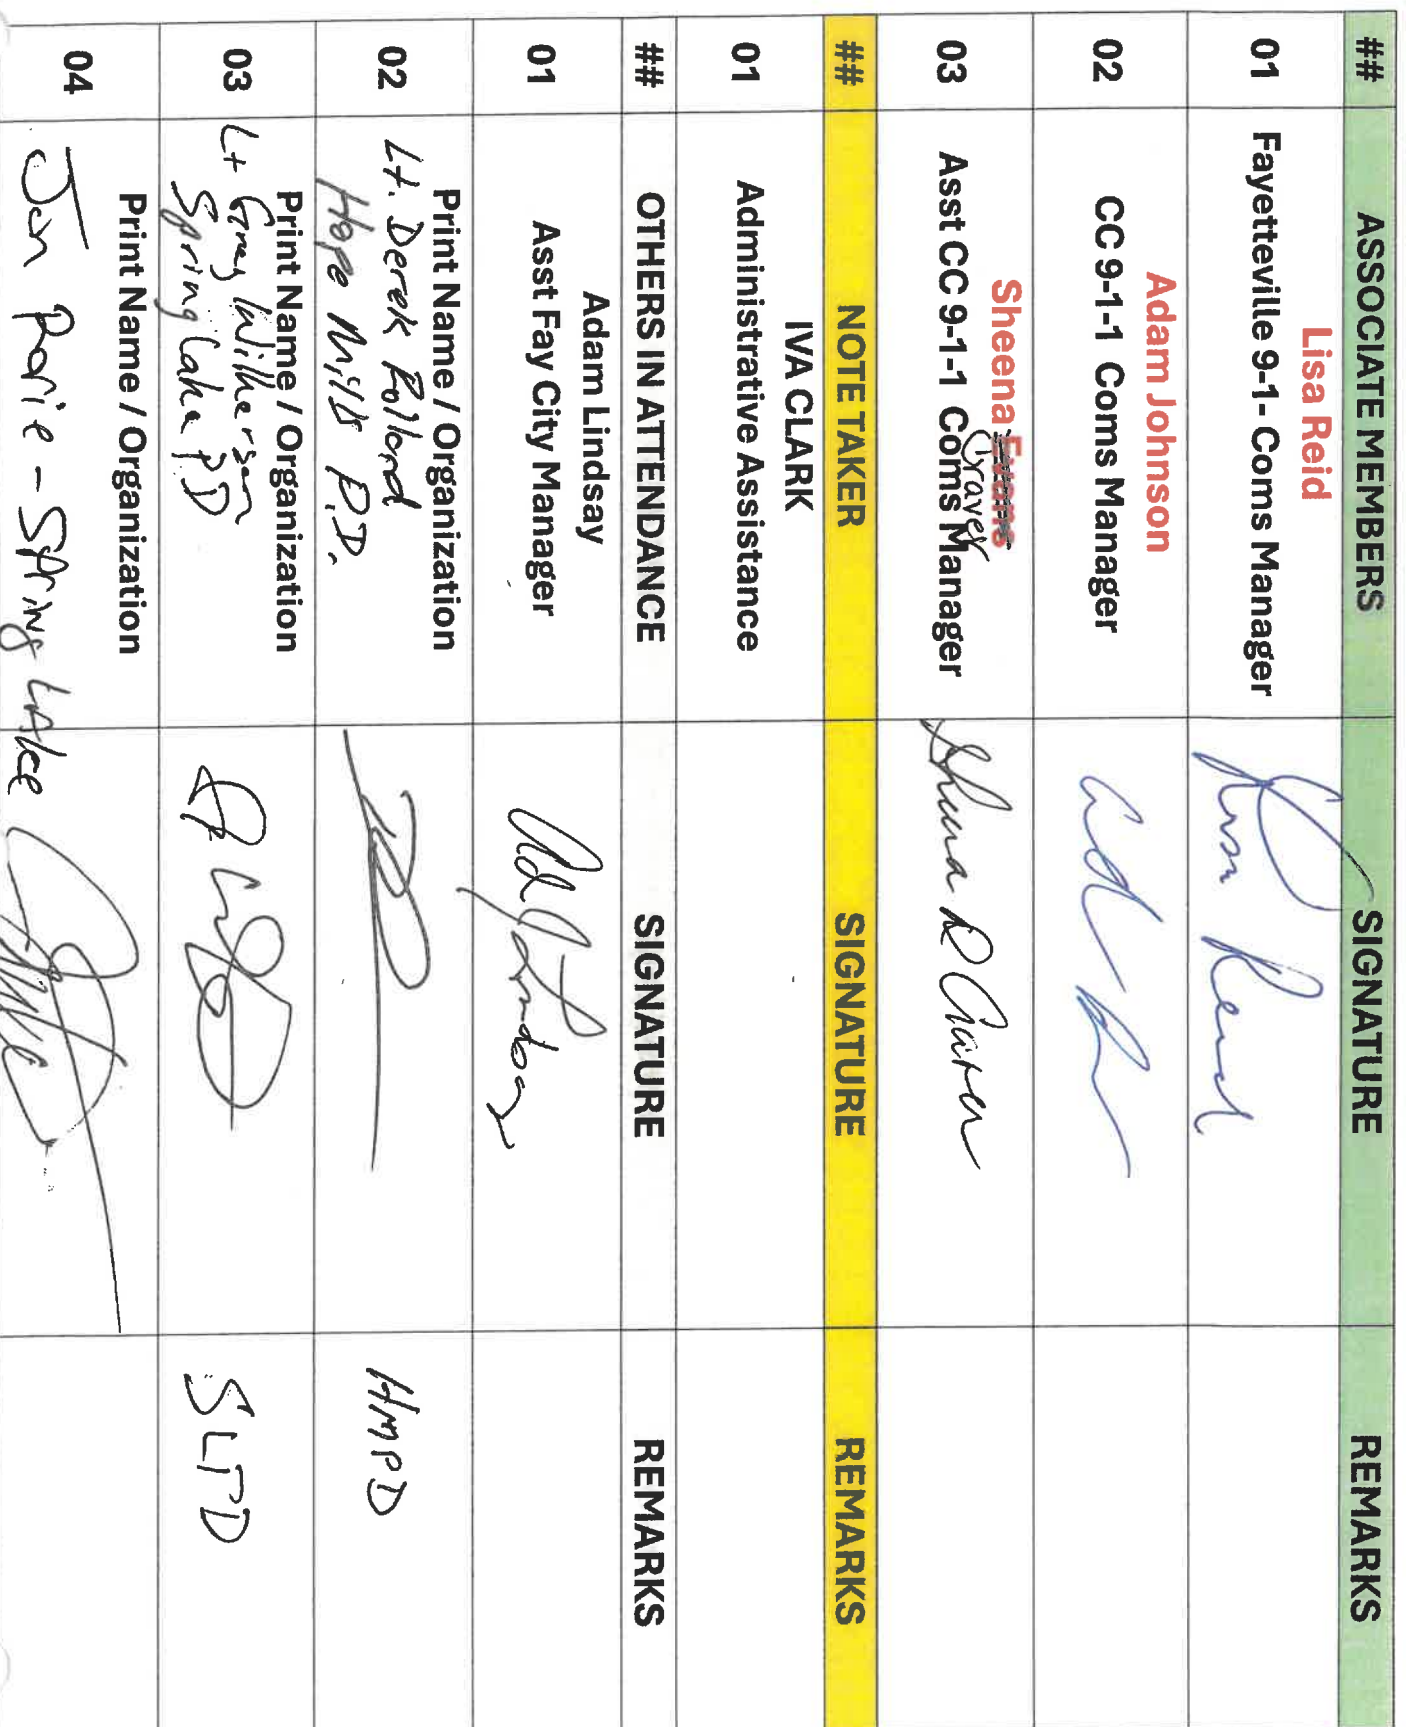 ## ASSOCIATE MEMBERS SIGNATURE REMARKS
01 Lisa Reid
Fayetteville 9-1- Coms Manager
Lisa Reid
02 Adam Johnson
CC 9-1-1 Coms Manager
03 Sheena Evans
Craver
Asst CC 9-1-1 Coms Manager
Sheena R Craver
## NOTE TAKER SIGNATURE REMARKS
01 IVA CLARK
Administrative Assistance
## OTHERS IN ATTENDANCE SIGNATURE REMARKS
01 Adam Lindsay
Asst Fay City Manager
02 Print Name / Organization
Lt. Derek Pollard
Hope Mills P.D.
HMPD
03 Print Name / Organization
Lt Greg Wilkerson
Spring Lake PD
SLPD
04 Print Name / Organization
Jon Rorie - Spring Lake